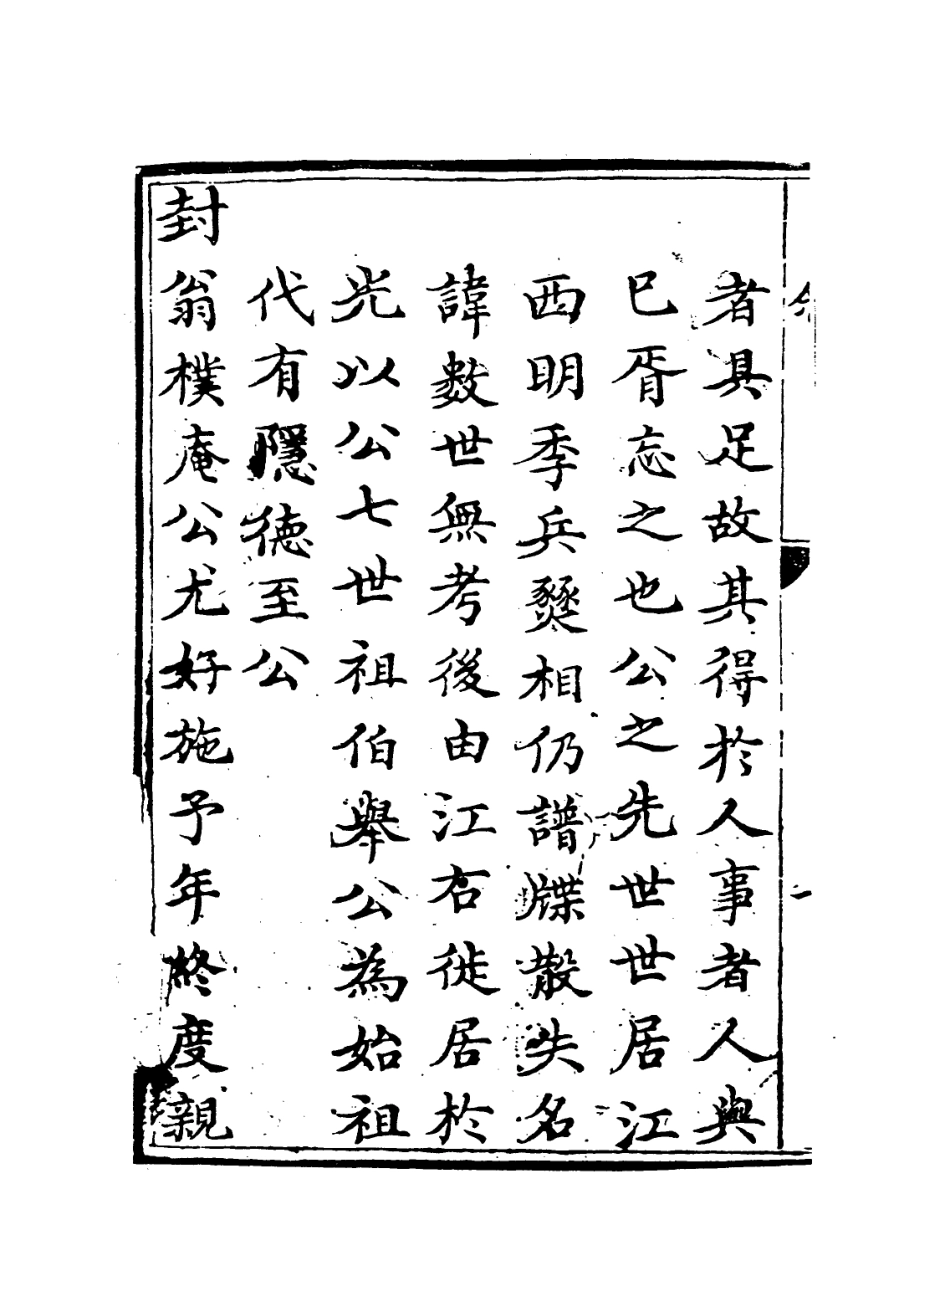 者具足故其得於人事者人與
已胥忘之也公之先世世居江
西明季兵燹相仍譜牒散失名
諱數世無考後由江右徙居於
光以公七世祖伯舉公為始祖
代有隱德至公
封翁樸庵公尤好施予年終度親